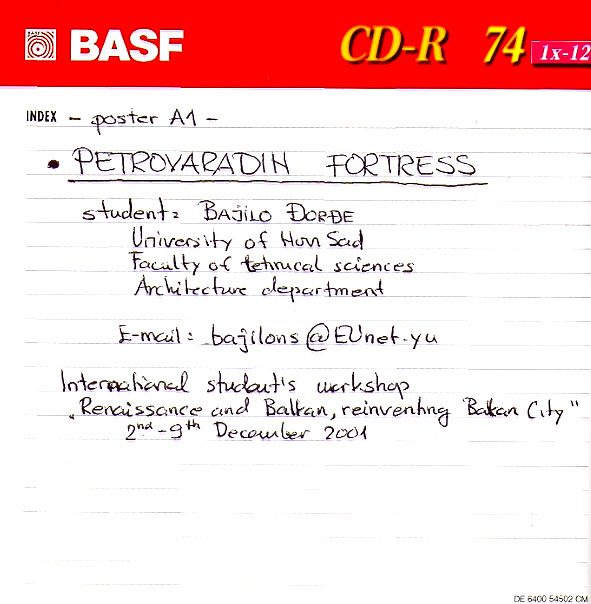 BASF
CD-R 74
1x-12
INDEX - poster A1 -
• PETROVARADIN FORTRESS
student: BAJILO ĐORĐE
University of Novi Sad
Faculty of tehnical sciences
Architecture department
E-mail: bajilons@EUnet.yu
International student's workshop
„Renaissance and Balkan, reinventing Balkan City"
2nd-9th December 2001
DE 6400 54502 CM